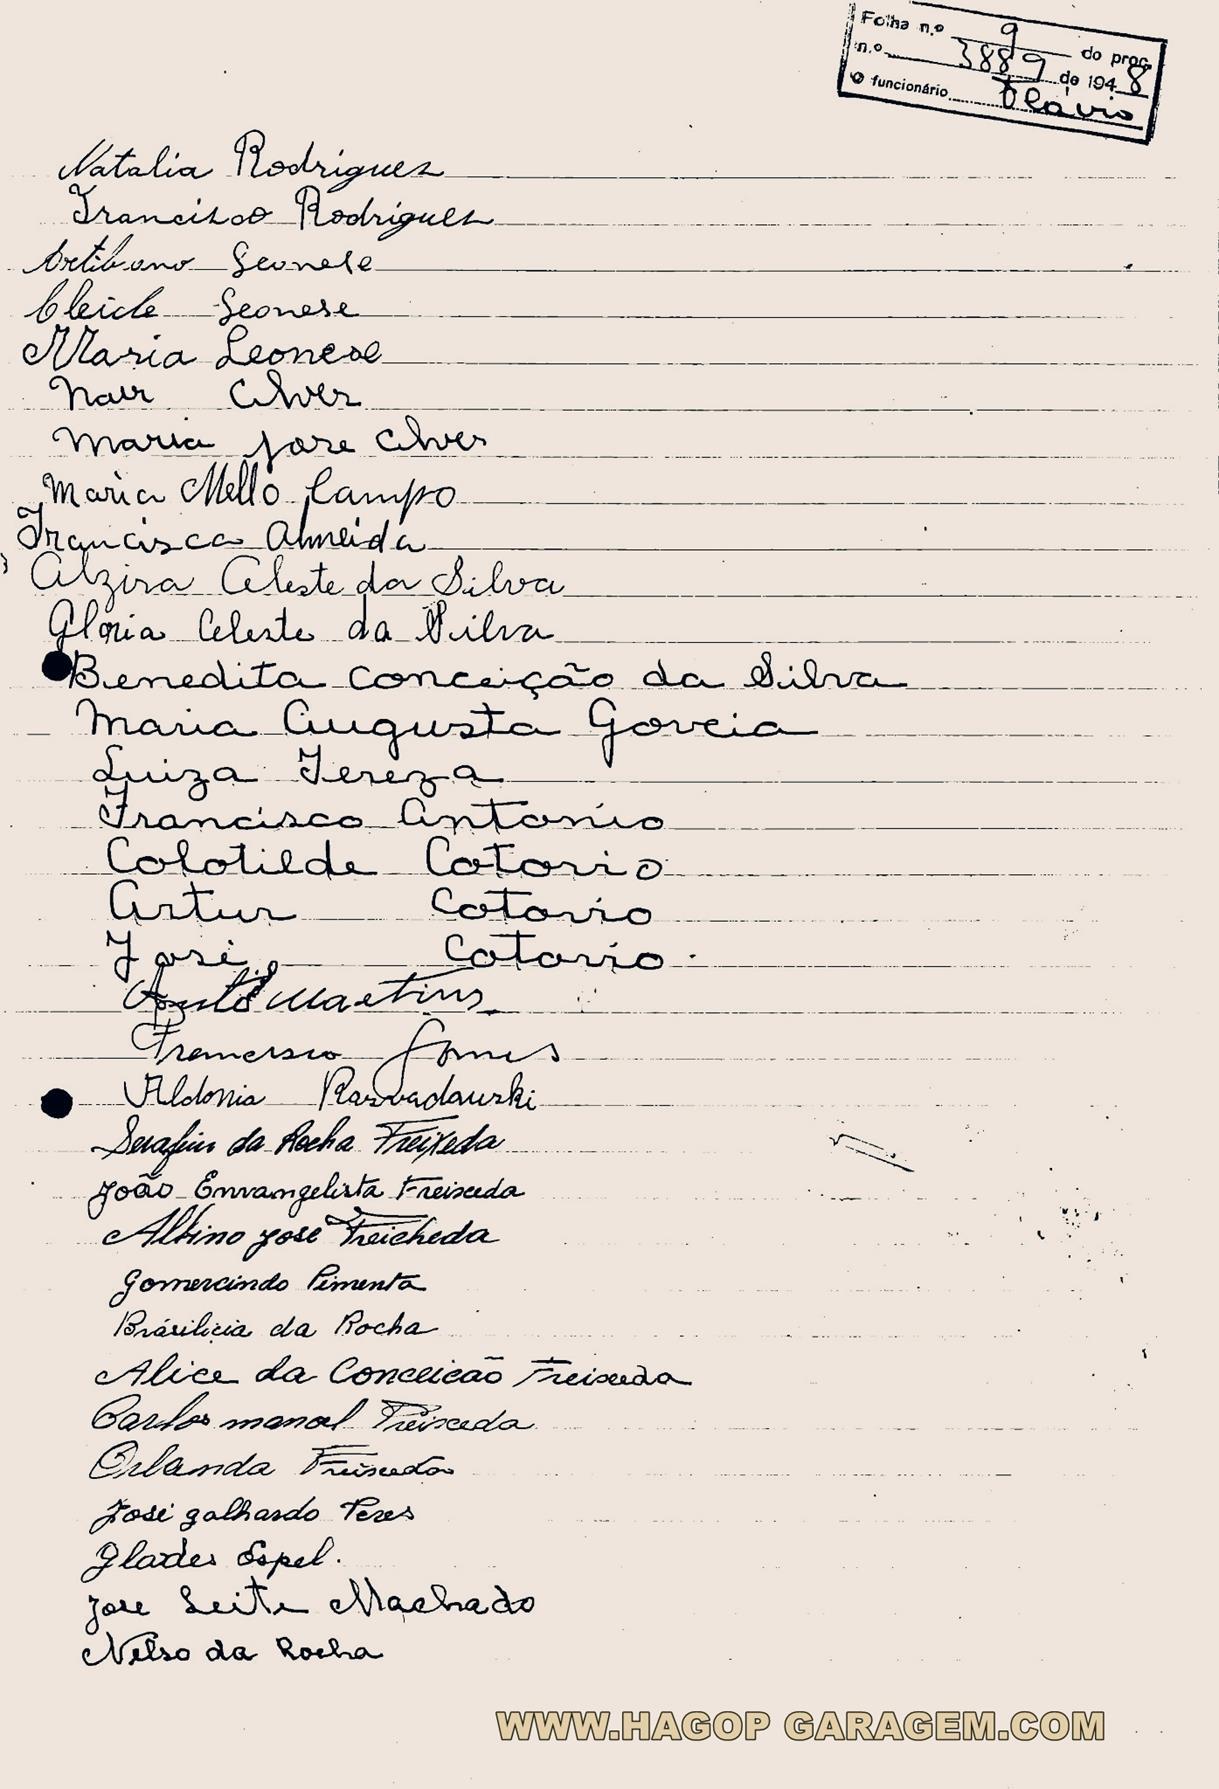 Folha n.º 9 do proc.
n.º 3889 de 1948
O funcionário Flávio
Natalia Rodrigues
Francisco Rodrigues
Leonese
Cleide Leonese
Maria Leonese
Nair Alves
Maria Jose Alves
Maria Mello Campo
Francisca Almeida
Alzira Celeste da Silva
Gloria Celeste da Silva
Benedita Conceição da Silva
Maria Augusta Goveia
Luiza Tereza
Francisco Antonio
Colotilde Cotovio
Artur Cotovio
José Cotovio
Martins
Francisco Gomes
Aldonia
Serafim da Rocha Freixeda
João Envangelista Freixeda
Albino José Freicheda
Gomercindo Pimenta
Brásilicia da Rocha
Alice da Conceicão Freixeda
Carlos manoel Freixeda
Orlanda Freixeda
José galhardo Peres
Glades Espel.
Jose Leite Machado
Nelso da Rocha
WWW.HAGOP GARAGEM.COM